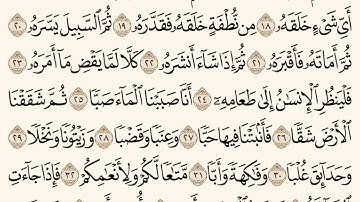 أَيِّ شَىْءٍ خَلَقَهُۥ ١٨ مِن نُّطْفَةٍ خَلَقَهُۥ فَقَدَّرَهُۥ ١٩ ثُمَّ ٱلسَّبِيلَ يَسَّرَهُۥ ٢٠
ثُمَّ أَمَاتَهُۥ فَأَقْبَرَهُۥ ٢١ ثُمَّ إِذَا شَآءَ أَنشَرَهُۥ ٢٢ كَلَّا لَمَّا يَقْضِ مَآ أَمَرَهُۥ ٢٣
فَلْيَنظُرِ ٱلْإِنسَٰنُ إِلَىٰ طَعَامِهِۦٓ ٢٤ أَنَّا صَبَبْنَا ٱلْمَآءَ صَبًّا ٢٥ ثُمَّ شَقَقْنَا
ٱلْأَرْضَ شَقًّا ٢٦ فَأَنۢبَتْنَا فِيهَا حَبًّا ٢٧ وَعِنَبًا وَقَضْبًا ٢٨ وَزَيْتُونًا وَنَخْلًا ٢٩
وَحَدَآئِقَ غُلْبًا ٣٠ وَفَٰكِهَةً وَأَبًّا ٣١ مَّتَٰعًا لَّكُمْ وَلِأَنْعَٰمِكُمْ ٣٢ فَإِذَا جَآءَتِ